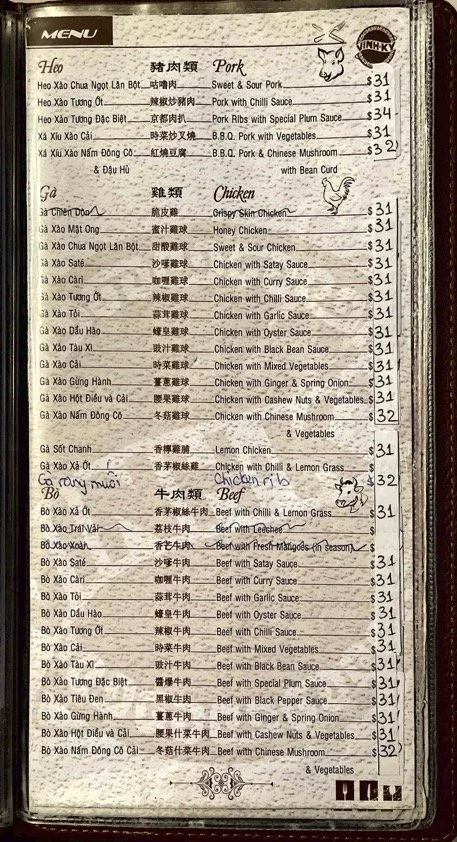 MENU
VINH-KY
Heo 豬肉類 Pork
Heo Xào Chua Ngọt Lăn Bột 咕嚕肉 Sweet & Sour Pork $31
Heo Xào Tương Ớt 辣椒炒豬肉 Pork with Chilli Sauce $31
Heo Xào Tương Đặc Biệt 京都肉扒 Pork Ribs with Special Plum Sauce $34
Xá Xíu Xào Cải 時菜炒叉燒 B.B.Q. Pork with Vegetables $31
Xá Xíu Xào Nấm Đông Cô 紅燒豆腐 B.B.Q. Pork & Chinese Mushroom $32
& Đậu Hủ with Bean Curd
Gà 雞類 Chicken
Gà Chiên Dòn 脆皮雞 Crispy Skin Chicken $31
Gà Xào Mật Ong 蜜汁雞球 Honey Chicken $31
Gà Xào Chua Ngọt Lăn Bột 甜酸雞球 Sweet & Sour Chicken $31
Gà Xào Saté 沙嗲雞球 Chicken with Satay Sauce $31
Gà Xào Càri 咖喱雞球 Chicken with Curry Sauce $31
Gà Xào Tương Ớt 辣椒雞球 Chicken with Chilli Sauce $31
Gà Xào Tỏi 蒜茸雞球 Chicken with Garlic Sauce $31
Gà Xào Dầu Hào 蠔皇雞球 Chicken with Oyster Sauce $31
Gà Xào Tàu Xì 豉汁雞球 Chicken with Black Bean Sauce $31
Gà Xào Cải 時菜雞球 Chicken with Mixed Vegetables $31
Gà Xào Gừng Hành 薑蔥雞球 Chicken with Ginger & Spring Onion $31
Gà Xào Hột Điều và Cải 腰果雞球 Chicken with Cashew Nuts & Vegetables $31
Gà Xào Nấm Đông Cô 冬菇雞球 Chicken with Chinese Mushroom $32
& Vegetables
Gà Sốt Chanh 香檸雞脯 Lemon Chicken $31
Gà Xào Xả Ớt 香茅椒絲雞 Chicken with Chilli & Lemon Grass
Gà rang muối Chicken rib $32
Bò 牛肉類 Beef
Bò Xào Xả Ớt 香茅椒絲牛肉 Beef with Chilli & Lemon Grass $31
Bò Xào Trái Vải 荔枝牛肉 Beef with Leechee $
Bò Xào Xoài 香芒牛肉 Beef with Fresh Mangoes (in season) $
Bò Xào Saté 沙嗲牛肉 Beef with Satay Sauce $31
Bò Xào Càri 咖喱牛肉 Beef with Curry Sauce $31
Bò Xào Tỏi 蒜茸牛肉 Beef with Garlic Sauce $31
Bò Xào Dầu Hào 蠔皇牛肉 Beef with Oyster Sauce $31
Bò Xào Tương Ớt 辣椒牛肉 Beef with Chilli Sauce $31
Bò Xào Cải 時菜牛肉 Beef with Mixed Vegetables $31
Bò Xào Tàu Xì 豉汁牛肉 Beef with Black Bean Sauce $31
Bò Xào Tương Đặc Biệt 醬爆牛肉 Beef with Special Plum Sauce $31
Bò Xào Tiêu Đen 黑椒牛肉 Beef with Black Pepper Sauce $31
Bò Xào Gừng Hành 薑蔥牛肉 Beef with Ginger & Spring Onion $31
Bò Xào Hột Điều và Cải 腰果什菜牛肉 Beef with Cashew Nuts & Vegetables $31
Bò Xào Nấm Đông Cô Cải 冬菇什菜牛肉 Beef with Chinese Mushroom $32
& Vegetables